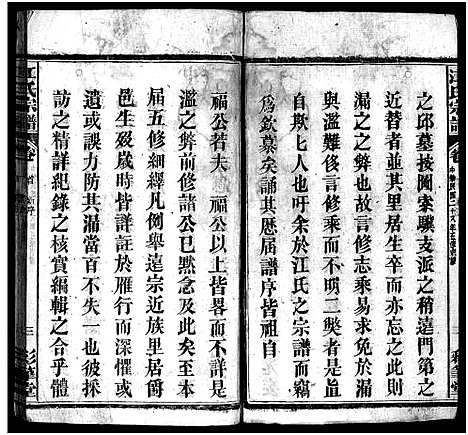 江氏宗譜
之邱墓按圖索驥支派之稍遠門第之
近替者並其里居生卒而亦忘之此則
漏之之弊也故言修志乘不實而漏
與濫難修言修而不明二獘者是眞
自欺之人也吁余於江氏之宗譜有
爲欽慕矣誦其歷届譜序皆祖自
福公若夫 福公以上皆畧而不詳是
濫之弊前修諸公已默念及此矣至本
届五修細繹凡例舉遠宗近族里居爵
邑生殁歲時皆詳註於雁行而深懼或
遺或誤力防其漏當百不失一也彼採
訪之精詳紀錄之核實編輯之合乎體
江氏宗譜
卷首
三
彩筆堂